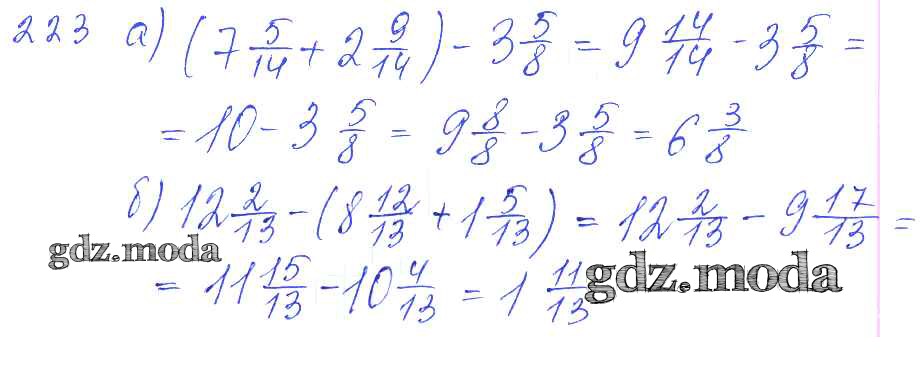 223 а) (7 5/14 + 2 9/14) - 3 5/8 = 9 14/14 - 3 5/8 =
= 10 - 3 5/8 = 9 8/8 - 3 5/8 = 6 3/8
б) 12 2/13 - (8 12/13 + 1 5/13) = 12 2/13 - 9 17/13 =
gdz.moda
= 11 15/13 - 10 4/13 = 1 11/13
gdz.moda